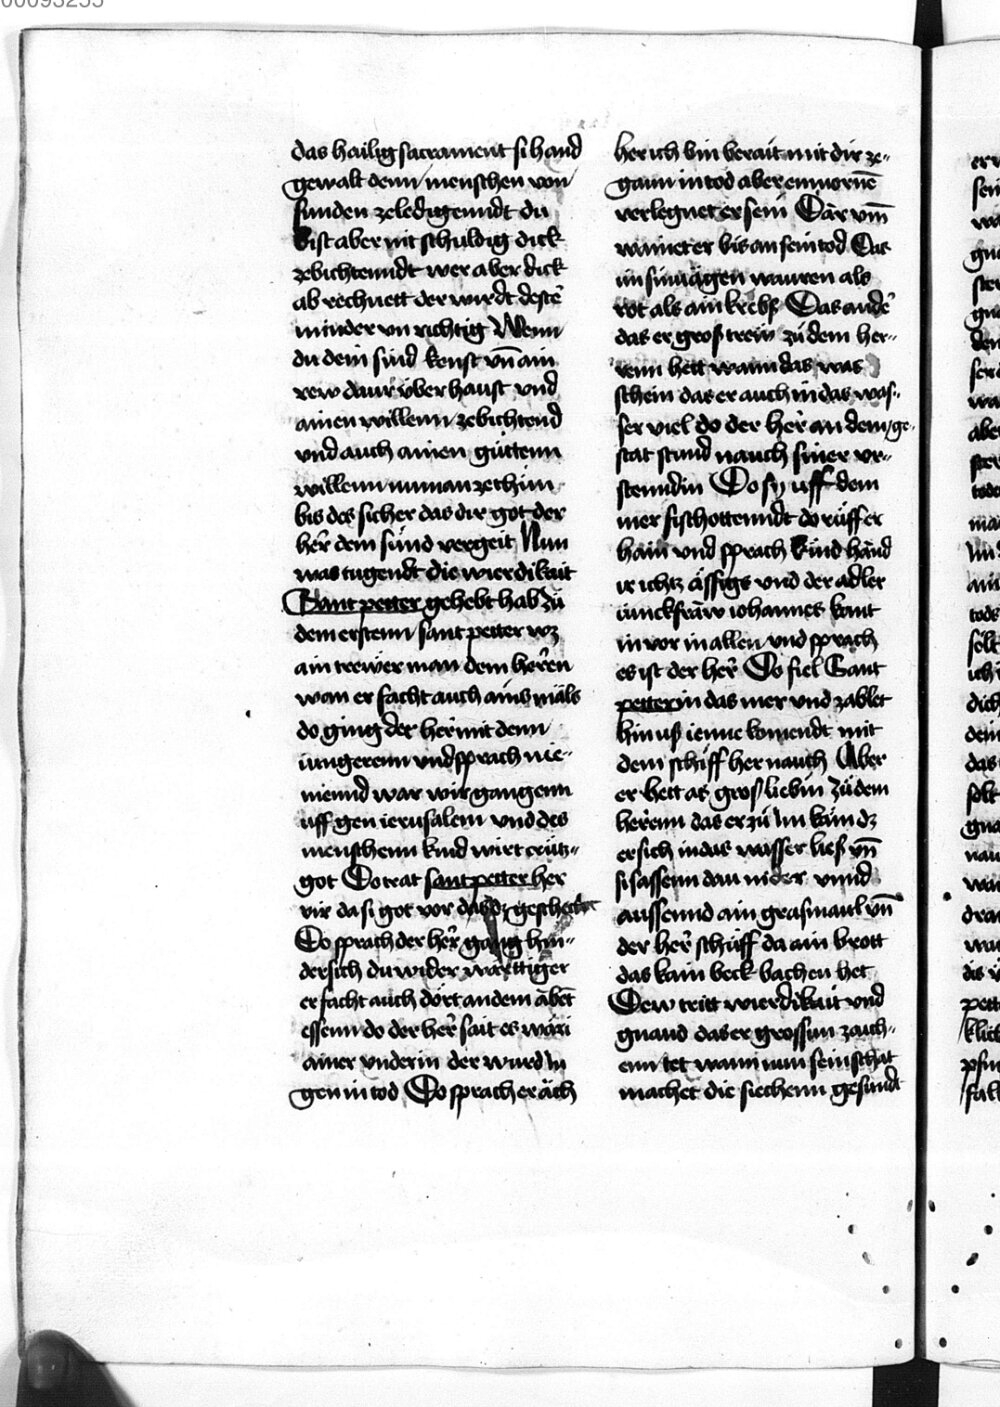 00093255
das hailig sacrament si hand
gewalt denn menschen von
sunden zeledigenndt du
bist aber nit schuldig dick
zebichtenndt wer aber dick
ab rechnett der wirdt destē
minder vn richtig Wenn
du dein sünd kenst vn̄ ain
rew daur vber haust vnd
ainen willenn zebichtend
vnd auch ainen güttenn
willenn nimanzethün
bis des sicher das dir got der
her̄ dem sünd vergeit Nun
was tugendt die wierdikait
Sant petter gehebt hab zü
dem erstenn sant petter wz
ain trewer man dem herren
wan er sacht auch ains mäls
do ging der her mit denn
iungerenn vnd sprach nie-
niennd war wir gangenn
uff gen ierusalem vnd des
menschenn kind wirt crütz-
got Do trat sant petter her
vir da si got vor das dz geschech
Do sprach der her̄ gang hin-
dersich du wider wärttiger
er sacht auch dort an dem äbet̄
essenn do der her̄ sait es wäri
ainer vnder in der wurd in
gen in tod Do sprach er äch
her ich bin berait mit dir ze-
gann in tod aber enmornē
verlegnet er sein Dar vm̄
wainet er bis an sein tod Das
im sin äägen wauren als
rot als ain krebs Das andē
das er gros trew zü dem her-
renn hett wann das was
schein das er auch in das was-
ser viel do der her an dem ge-
stat stund nauch siner vr-
stenndin Do sy uff dem
mer fischottenndt do rüffer
hain vnd sprach kind händ
ir ichtz ässigs vnd der adler
iunckfräw iohannes kant
in vor in allen vnd sprach
es ist der her̄ Do fiel Sant
petter in das mer vnd zablet
hin uß ienne komendt mit
dem schiff her nauch Aber
er hett as groß liebin zü dem
herenn das er zü im käm dz
er sich in das wasser ließ vn̄
si sassenn dau nider vnnd
aussennd ain grasmaul vn̄
der her̄ schüff da ain brott
das kain beck bachen het
Dew tritt wierdikait vnd
gnaud das er grossun zaich-
enn tet wann nun sein schat
machet die siechenn gesundt